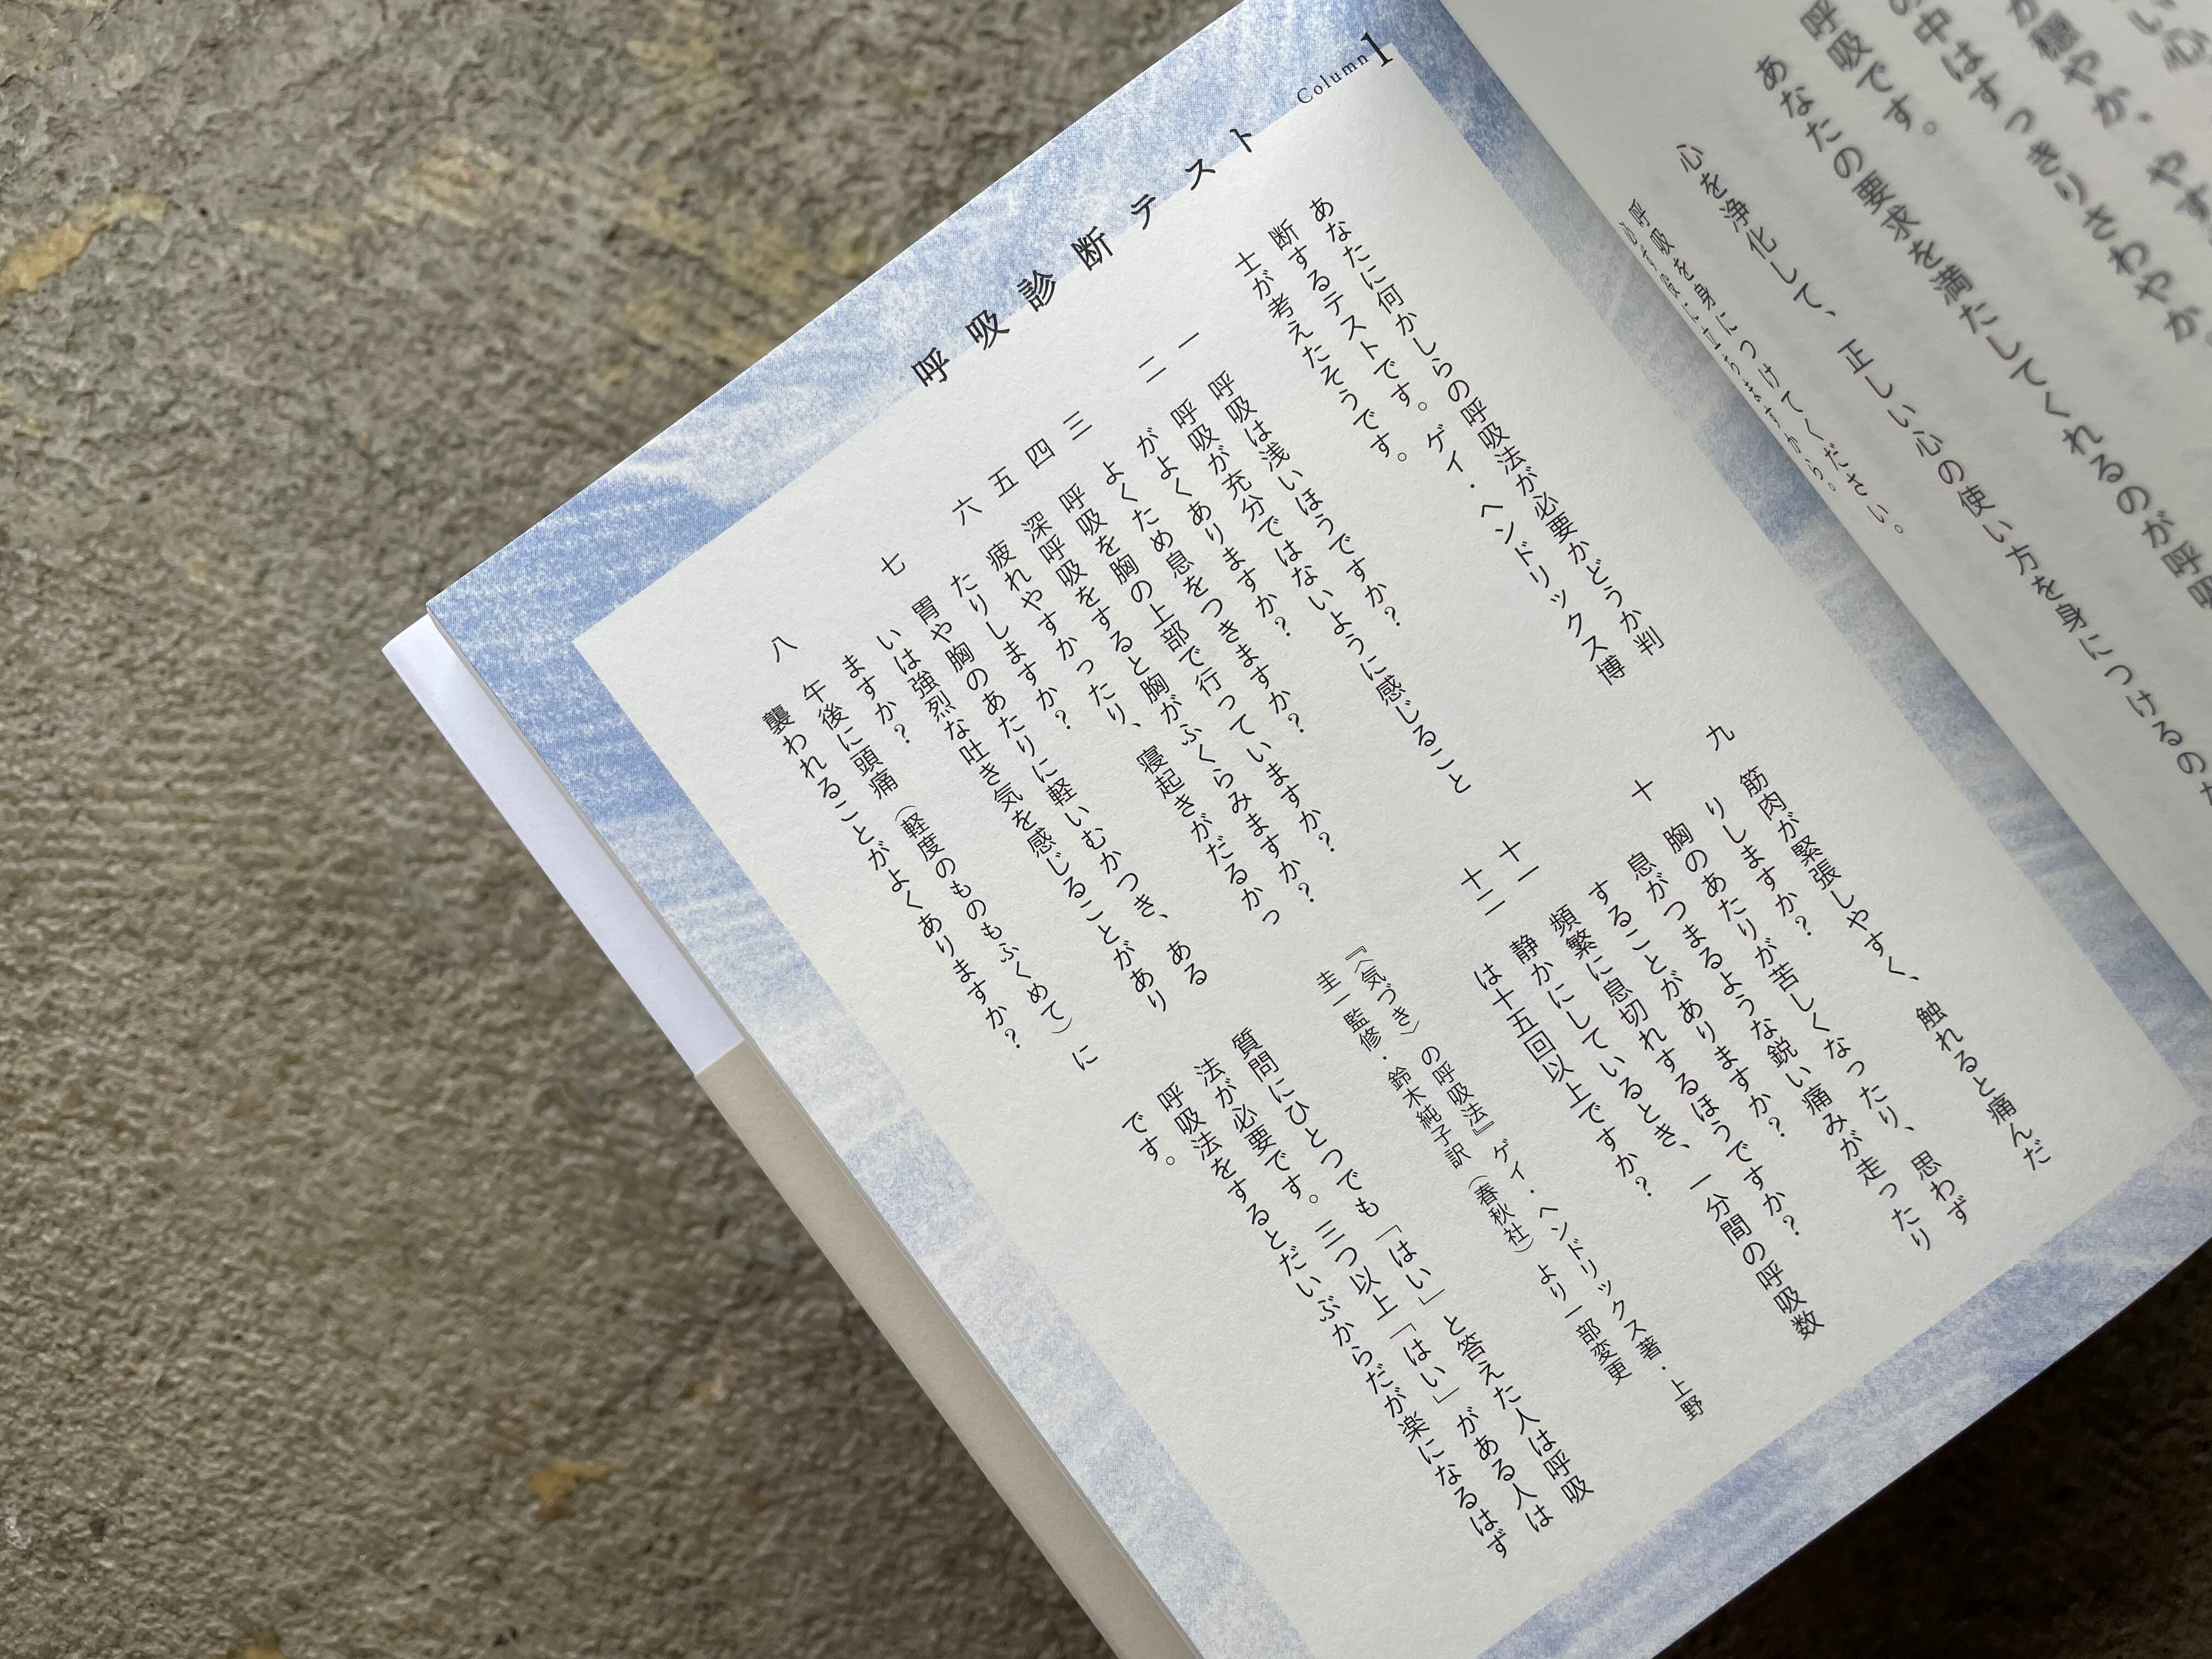 い心
が穏やか、やす
の中はすっきりさわやか。
呼吸です。
あなたの要求を満たしてくれるのが呼吸
心を浄化して、正しい心の使い方を身につけるのた
呼吸を身につけてください。
必ず役に立ちますから。
Column 1
呼吸診断テスト
あなたに何かしらの呼吸法が必要かどうか判
断するテストです。ゲイ・ヘンドリックス博
士が考えたそうです。
一 呼吸は浅いほうですか?
二 呼吸が充分ではないように感じること
がよくありますか?
三 よくため息をつきますか?
四 呼吸を胸の上部で行っていますか?
五 深呼吸をすると胸がふくらみますか?
六 疲れやすかったり、寝起きがだるかっ
たりしますか?
七 胃や胸のあたりに軽いむかつき、ある
いは強烈な吐き気を感じることがあり
ますか?
八 午後に頭痛(軽度のものもふくめて)に
襲われることがよくありますか?
九 筋肉が緊張しやすく、触れると痛んだ
りしますか?
十 胸のあたりが苦しくなったり、思わず
息がつまるような鋭い痛みが走ったり
することがありますか?
十一 頻繁に息切れするほうですか?
十二 静かにしているとき、一分間の呼吸数
は十五回以上ですか?
『〈気づき〉の呼吸法』ゲイ・ヘンドリックス著・上野
圭一監修・鈴木純子訳(春秋社)より一部変更
質問にひとつでも「はい」と答えた人は呼吸
法が必要です。三つ以上「はい」がある人は
呼吸法をするとだいぶからだが楽になるはず
です。